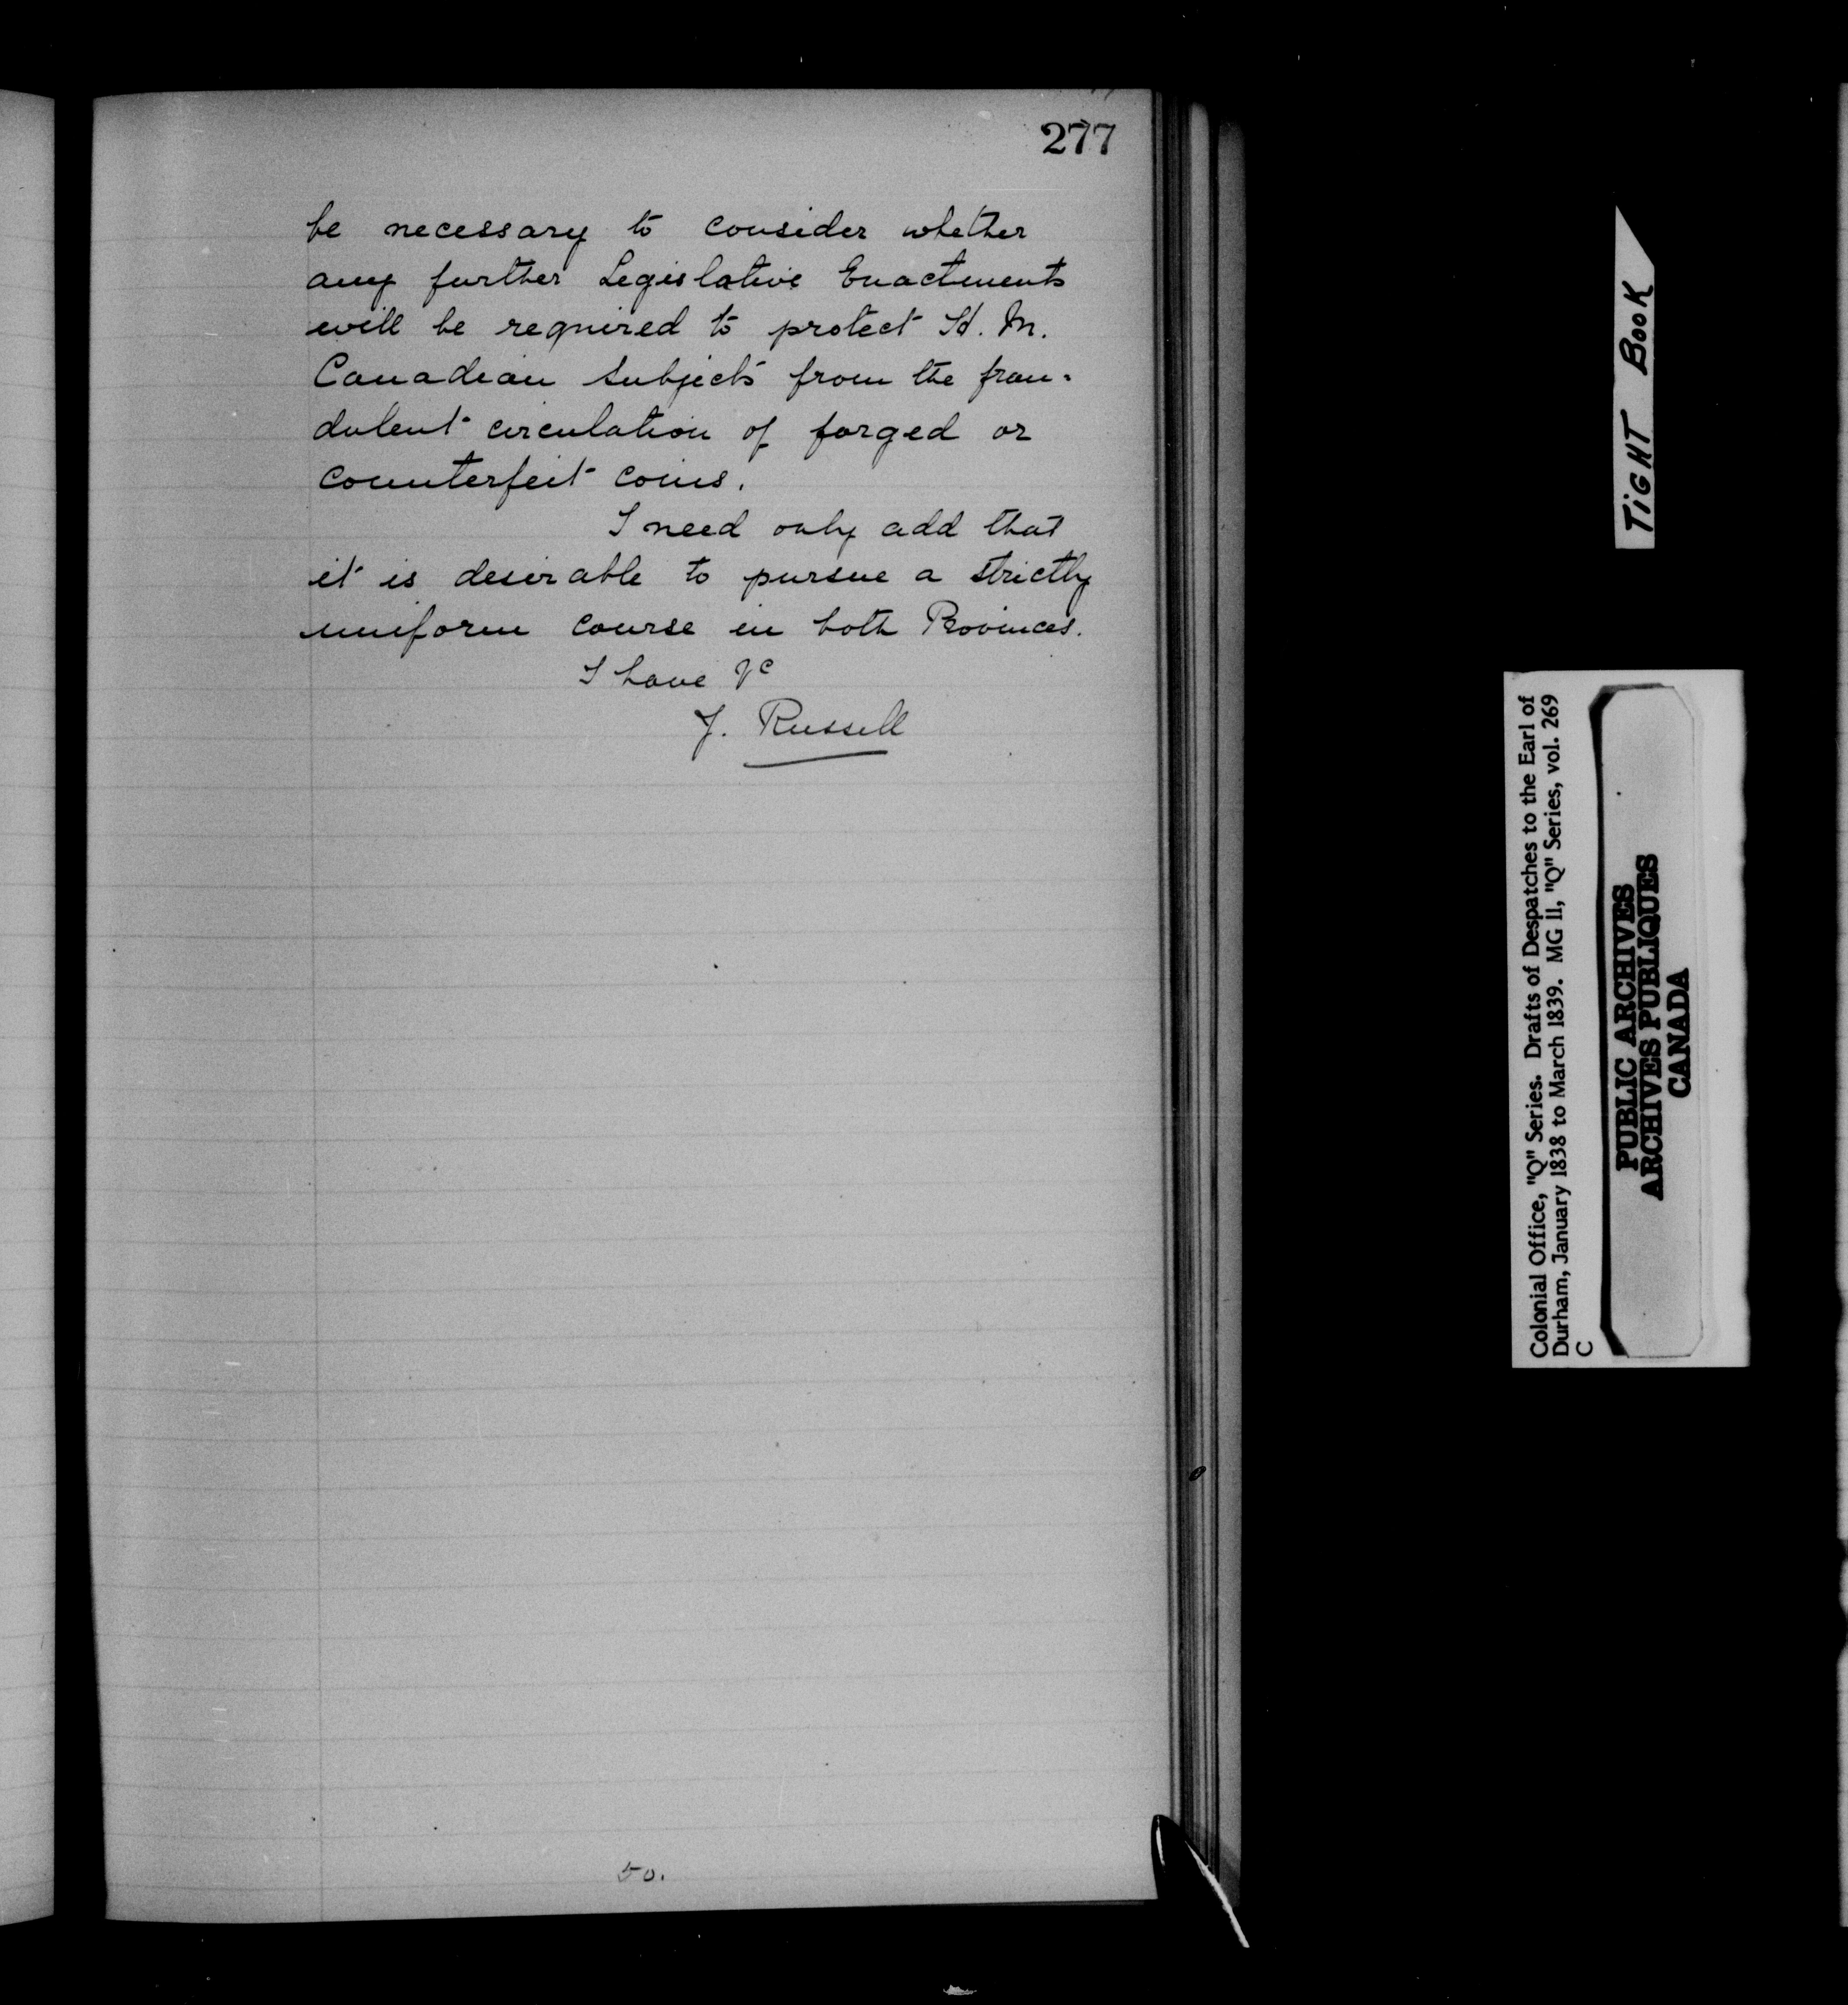 277
be necessary to consider whether
any further Legislative Enactments
will be required to protect H. M.
Canadian Subjects from the frau-
dulent circulation of forged or
counterfeit coins.
I need only add that
it is desirable to pursue a strictly
uniform course in both Provinces.
I have &c
J. Russell
50.
TIGHT BOOK
Colonial Office, "Q" Series. Drafts of Despatches to the Earl of
Durham, January 1838 to March 1839. MG 11, "Q" Series, vol. 269
C
PUBLIC ARCHIVES
ARCHIVES PUBLIQUES
CANADA